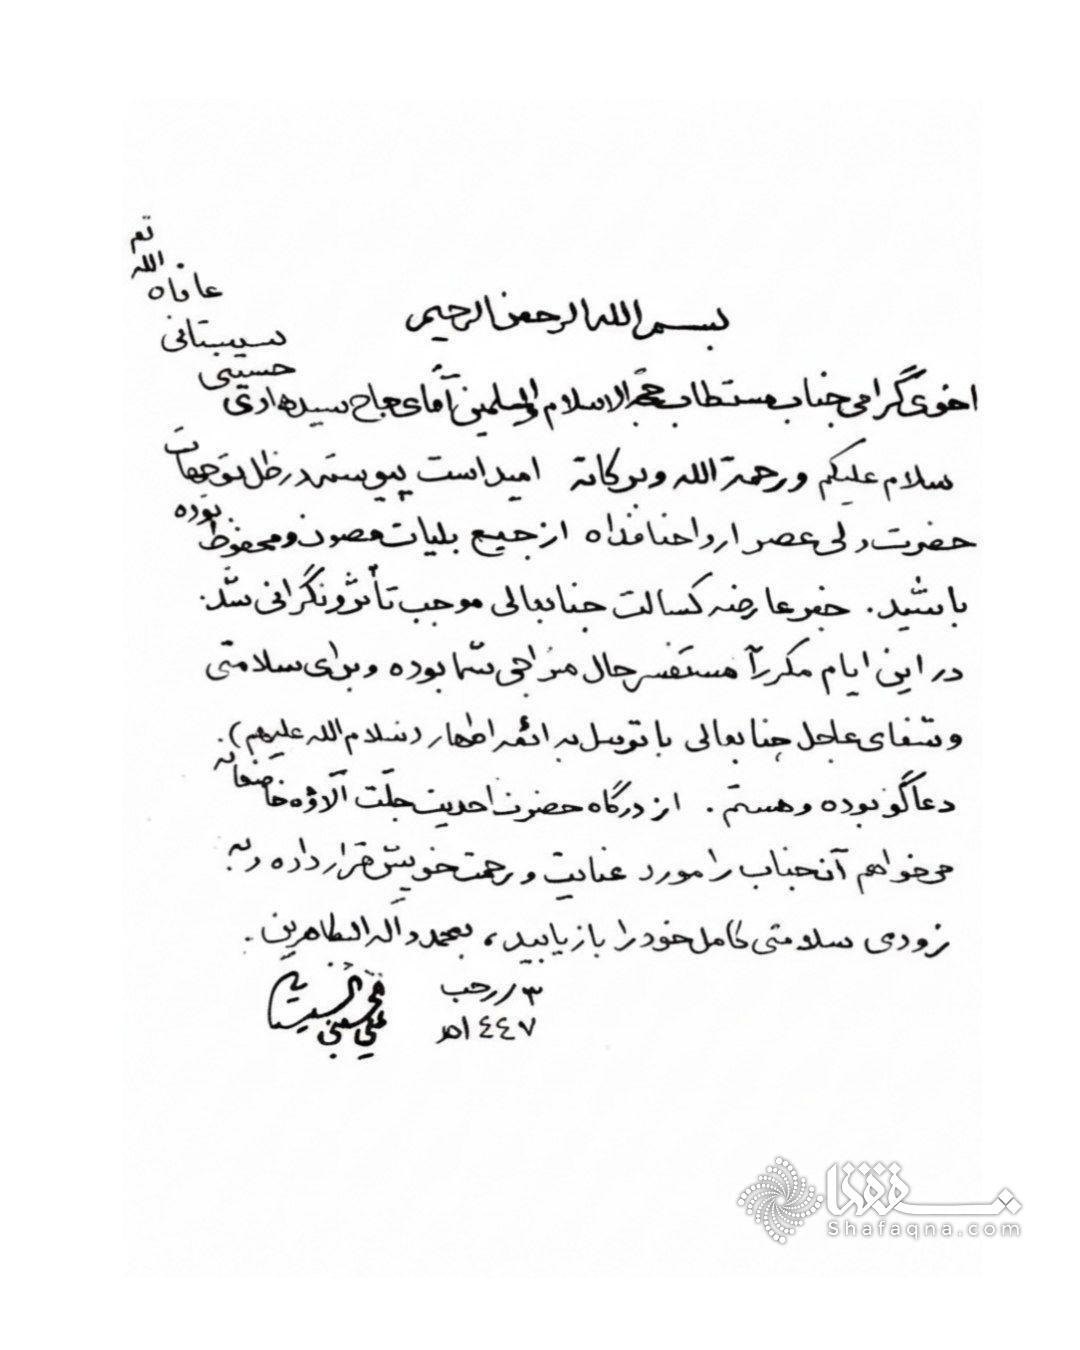 بسم الله الرحمن الرحیم
اخوی گرامی جناب مستطاب حجة الاسلام والمسلمین آقای حاج سید هادی حسینی سیستانی عافاه الله تع
سلام علیکم و رحمة الله وبرکاته امید است پیوسته در ظل توجهات
حضرت ولی عصر ارواحنا فداه از جمیع بلیات مصون و محفوظ بوده
باشید. خبر عارضه کسالت جنابعالی موجب تأثر و نگرانی شد.
در این ایام مکررآ مستفسر حال مزاجی شما بوده و برای سلامتی
و شفای عاجل جنابعالی با توسل به ائمه اطهار (سلام الله علیهم).
دعاگو بوده و هستم. از درگاه حضرت احدیت جلّت آلاؤه خاضعانه
می خواهم آن جناب را مورد عنایت و رحمت خویش قرار داده و به
زودی سلامتی کامل خود را بازیابید، بمحمد وآله الطاهرین.
٣ / رجب
١٤٤٧ هـ
علی الحسینی السیستانی
شفقنا
Shafaqna.com